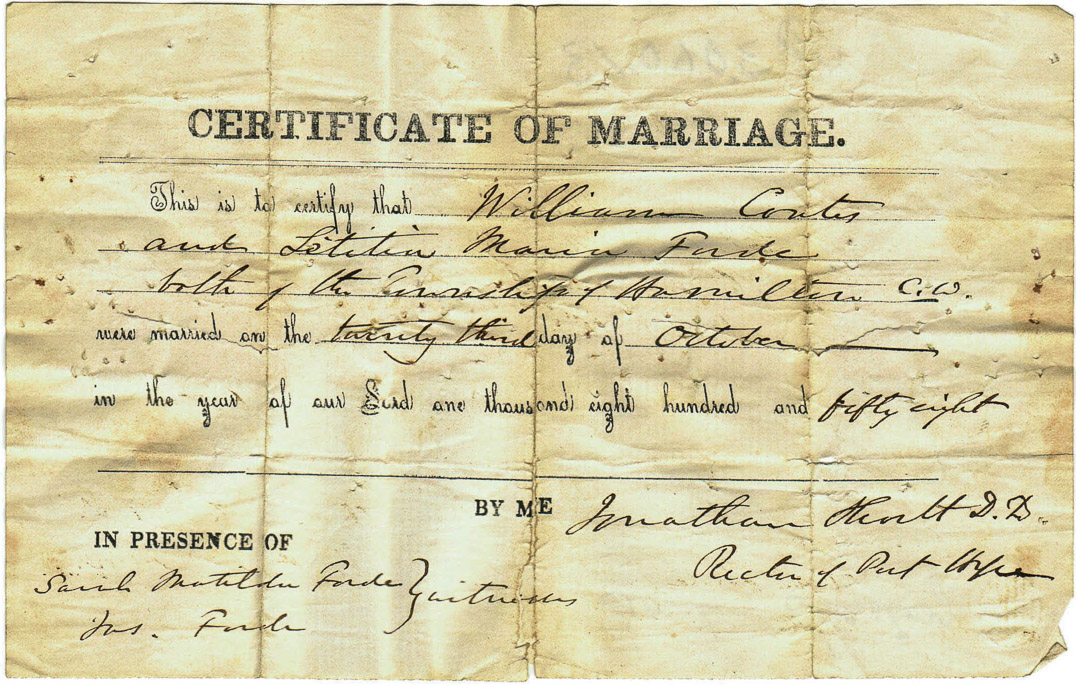 CERTIFICATE OF MARRIAGE.
This is to certify that William Coates
and Letitia Maria Forde
both of the Township of Hamilton C.W.
were married on the twenty third day of October
in the year of our Lord one thousand eight hundred and fifty eight
BY ME Jonathan Shortt D.D.
IN PRESENCE OF
Rector of Port Hope
Sarah Matilda Forde } witnesses
Jas. Forde